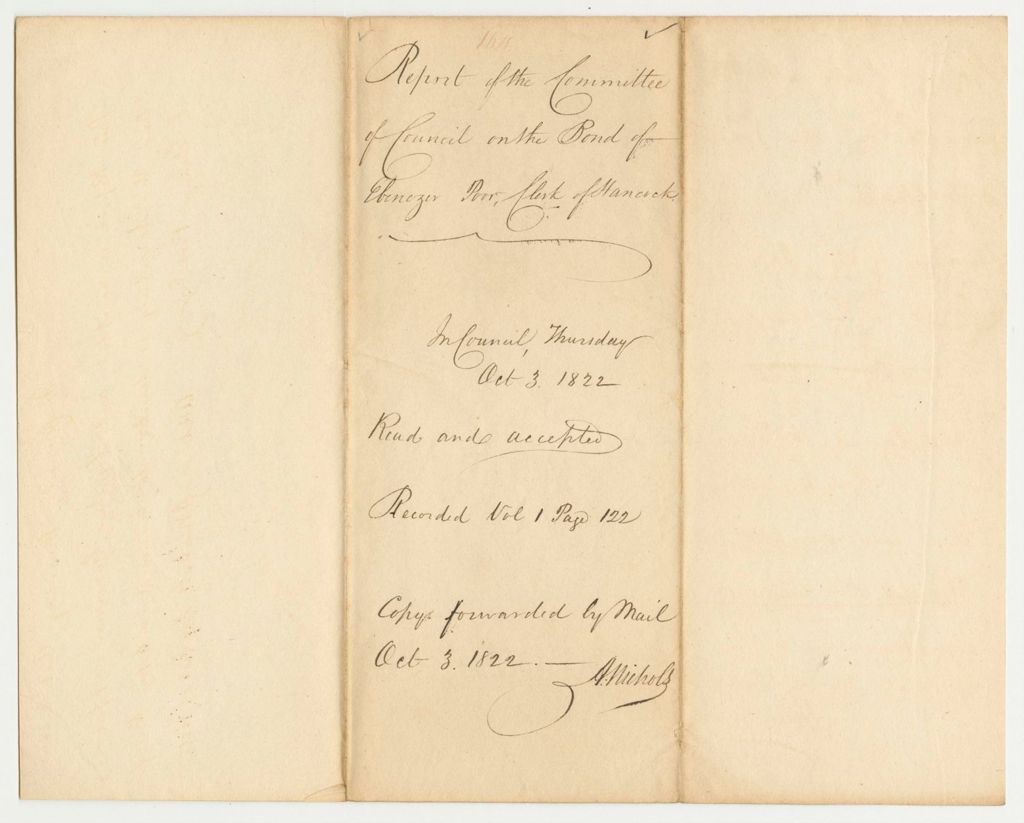 Report of the Committee
of Council on the Bond of
Ebenezer Poor, Clerk of Hancock
In Council, Thursday
Oct 3. 1822
Read and accepted
Recorded Vol 1 Page 122
Copy forwarded by Mail
Oct 3. 1822. — A. Nichols